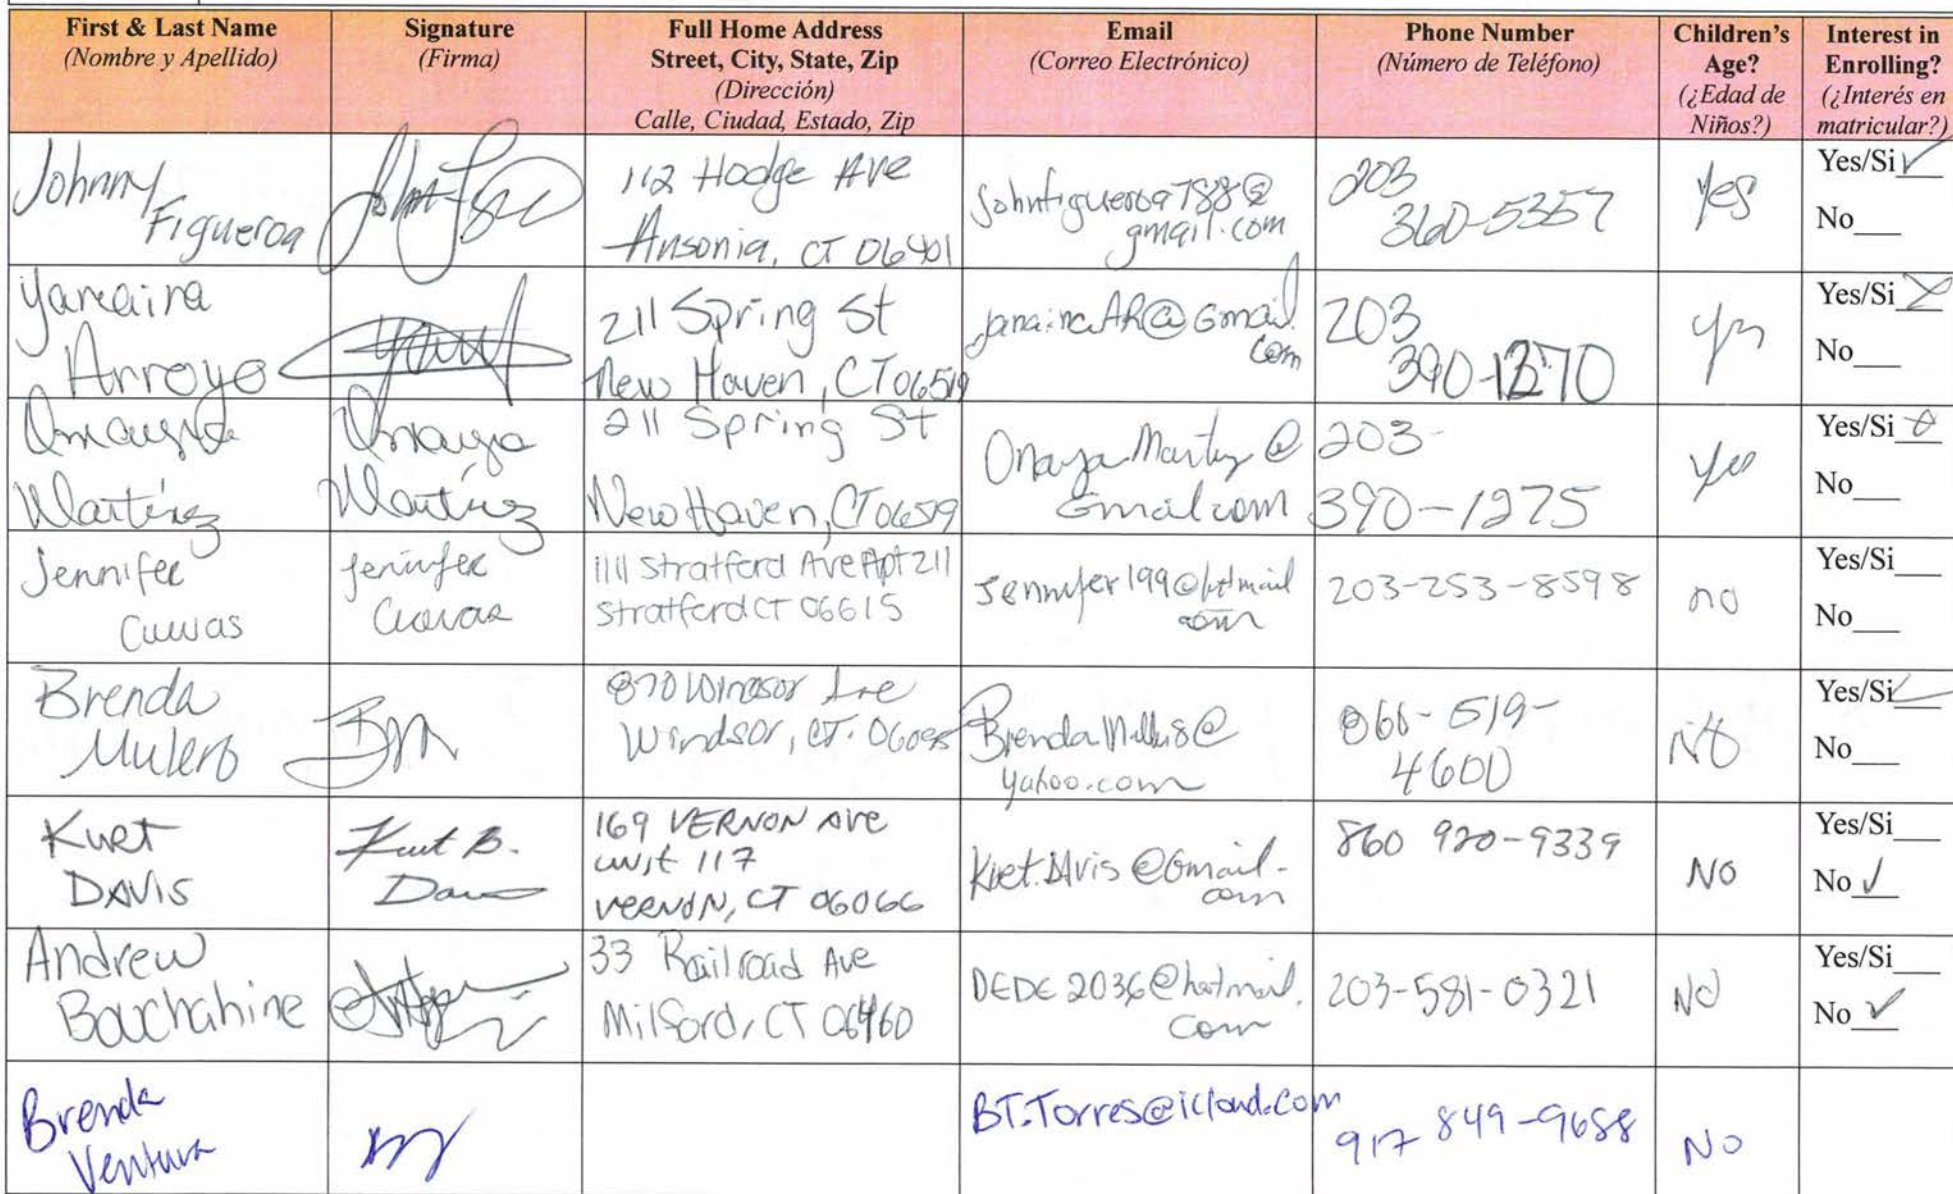 First & Last Name
(Nombre y Apellido)
Signature
(Firma)
Full Home Address
Street, City, State, Zip
(Dirección)
Calle, Ciudad, Estado, Zip
Email
(Correo Electrónico)
Phone Number
(Número de Teléfono)
Children's
Age?
(¿Edad de
Niños?)
Interest in
Enrolling?
(¿Interés en
matricular?)
Johnny
Figueroa
112 Hodge Ave
Ansonia, CT 06401
Johnfigueroa788@
gmail.com
203
360-5357
Yes
Yes/Si
No
Arroyo
211 Spring St
New Haven, CT 06519
@Gmail.
com
203
Yes/Si
No
Martinez
Martinez
211 Spring St
New Haven, CT 06519
Gmail.com
203-
390-1275
Yes
Yes/Si
No
Jennifer
Cuevas
Jennifer
Cuevas
1111 Stratford Ave Apt 211
Stratford CT 06615
Jennyfer199@hotmail
.com
203-253-8598
no
Yes/Si
No
Brenda
Mulero
870 Windsor Ave
Windsor, CT. 06095
yahoo.com
4600
NO
Yes/Si
No
Kurt
DAVIS
Kurt B.
Davis
169 VERNON AVE
unit 117
VERNON, CT 06066
Kurt.DAvis@Gmail.
com
860 920-9339
NO
Yes/Si
No
Andrew
Bouchahine
33 Railroad Ave
Milford, CT 06460
DEDE2036@hotmail.
com
203-581-0321
NO
Yes/Si
No
Brenda
Ventura
BT.Torres@icloud.com
917 849-9688
NO